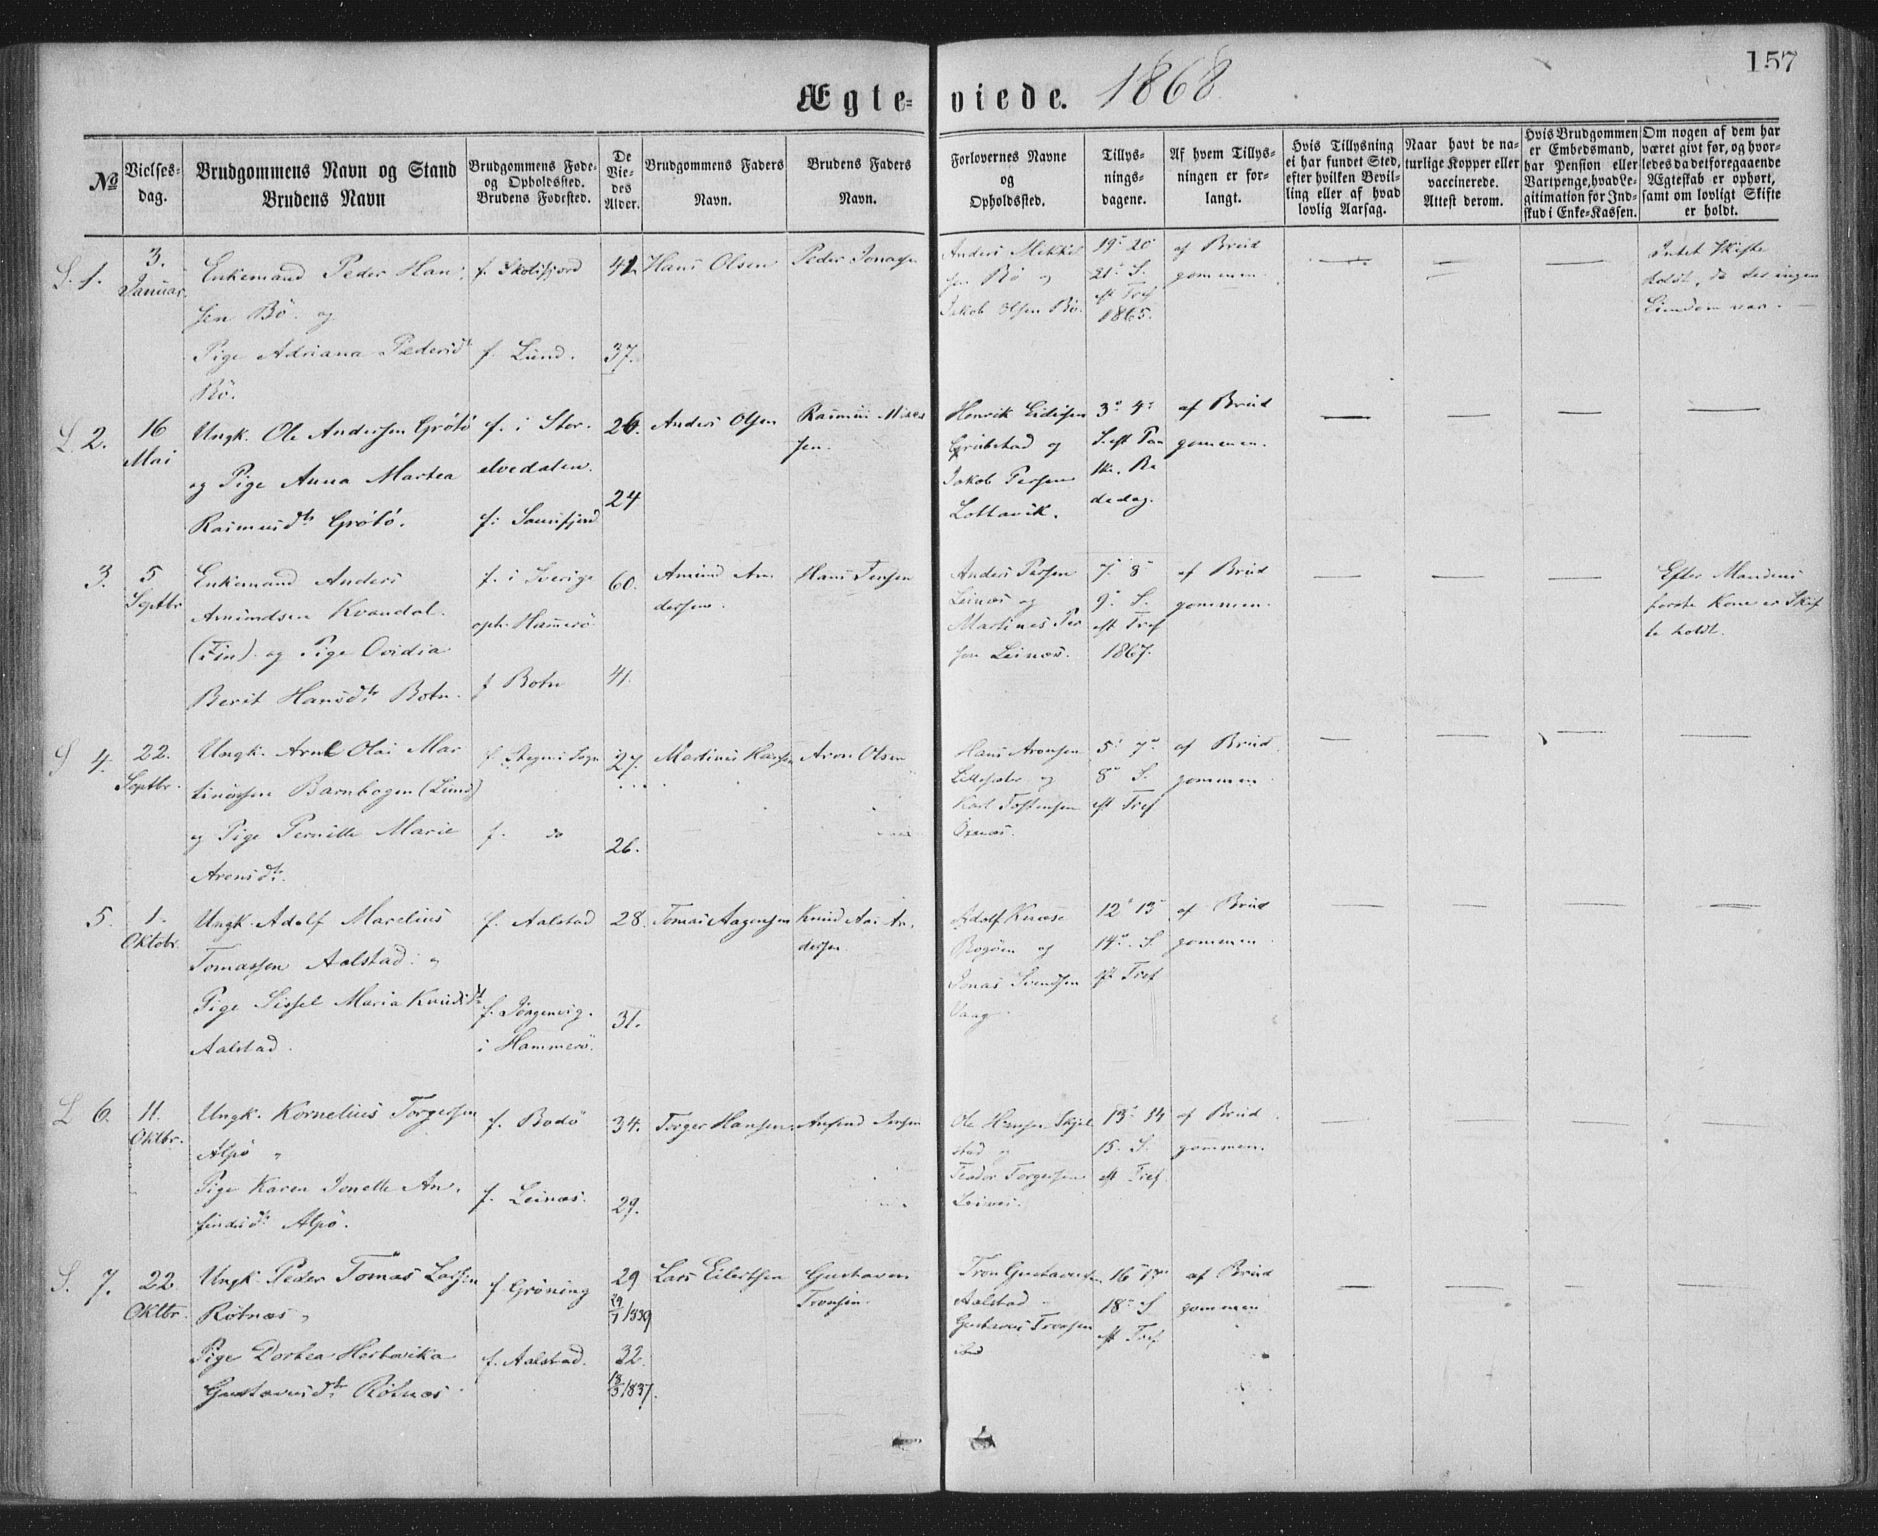 157
Ægte-viede. 1868
No
Vielses-
dag.
Brudgommens Navn og Stand
Brudens Navn
Brudgommens Føde-
og Opholdssted.
Brudens Fødested.
De
Vie-
des
Alder.
Brudgommens Faders
Navn.
Brudens Faders
Navn.
Forlovernes Navne
og
Opholdssted.
Tillys-
nings-
dagene.
Af hvem Tillys-
ningen er for-
langt.
Hvis Tillysning
ei har fundet Sted,
efter hvilken Bevil-
ling eller af hvad
lovlig Aarsag.
Naar havt de na-
turlige Kopper eller
vaccinerede.
Attest derom.
Hvis Brudgommen
er Embedsmand,
har Pension eller
Vartpenge, hvad Le-
gitimation for Ind-
skud i Enke-Kassen.
Om nogen af dem har
været givt før, og hvor-
ledes da det foregaaende
Ægteskab er ophørt,
samt om lovligt Skifte
er holdt.
1.
3.
Januar.
Enkemand Peder Han
sen Bö. og
Pige Adriana Pedersdt
Bö.
f. Skotsfjord
f. Lund.
41.
37.
Hans Olsen
Peder Jonassen
Anders Mikkel
sen Bö og
Jakob Olsen Bö.
19. 20
21. S.
eft Tref
1865.
af Brud
gommen
Intet Skifte
holdt, da der ingen
Eiendom var.
L 2.
16
Mai
Ungk. Ole Andersen Grötö
og Pige Anna Martea
Rasmusdtr Grötö.
f. i Stor-
elvedalen.
f: i
26.
24
Anders Olsen
Rasmus
sen.
Henrik
og
Jakob Persen
Lottavik.
3. 4.
S. eft Paa
ske. Be
dedag.
af Brud
gommen.
3.
5
Septbr
Enkemand Anders
Amundsen Kvandal.
(Fin). og Pige Ovidia
Berit Hansdtr Botn.
f. i Sverige
oph. Hamerö
f Botn
60.
41.
Amund An
dersen.
Hans Jensen
Anders Persen
Leinæs og
Martines Per
sen Leinæs.
7. 8
9. S.
eft Tref
1867.
af Brud
gommen.
Efter Mandens
første Kone er Skif
te holdt.
4.
22.
Septbr.
Ungk. Arnt Olai Mar
tinussen Barnhogen (Lund)
og Pige Pernille Marie
Aronsdtr.
f. Stegen i Sogn
f. do
27.
26.
Martinus Hansen
Aron Olsen
Hans Aronsen
og
Karl Tostensen
5. 7.
8. S.
eft Tref
af Brud
gommen
5.
1.
Oktobr.
Ungk. Adolf Marelius
Tomassen Aalstad. og
Pige Sissel Maria Knudsdt
Aalstad.
f. Aalstad
f. Jörgenvig.
i Hammerö.
28.
31.
Tomas Aagensen
Knud An-
dersen.
Adolf
Bogöen og
Jonas Svendsen
Vaag.
12. 13
14. S.
eft Tref
af Brud
gommen
L 6.
11.
Oktbr.
Ungk. Kornelius Torgersen
Alpö
Pige Karen Jonette An-
findsdtr Alpö.
f. Bodö
f. Leinæs.
34.
29.
Torger Hansen
Anfind Jensen
Ole Hansen Skjel
stad og
Teodor Torgersen
Leinæs.
13. 14
15. S.
eft Tref.
af Brud
gommen.
S. 7.
22
Oktbr.
Ungk. Peder Tomas Larsen
Rötnæs
Pige Dortea Hertvika
Gustavusdtr Rötnæs
f Gröning
f. Aalstad.
29
29/7 1839
32.
18/3 1837.
Lars Eilertsen
Gustavus
Tronsen.
Tron Gustavussen
Aalstad
Gustavus Tronsen
16. 17.
18. S
eft Tref
af Brud
gommen